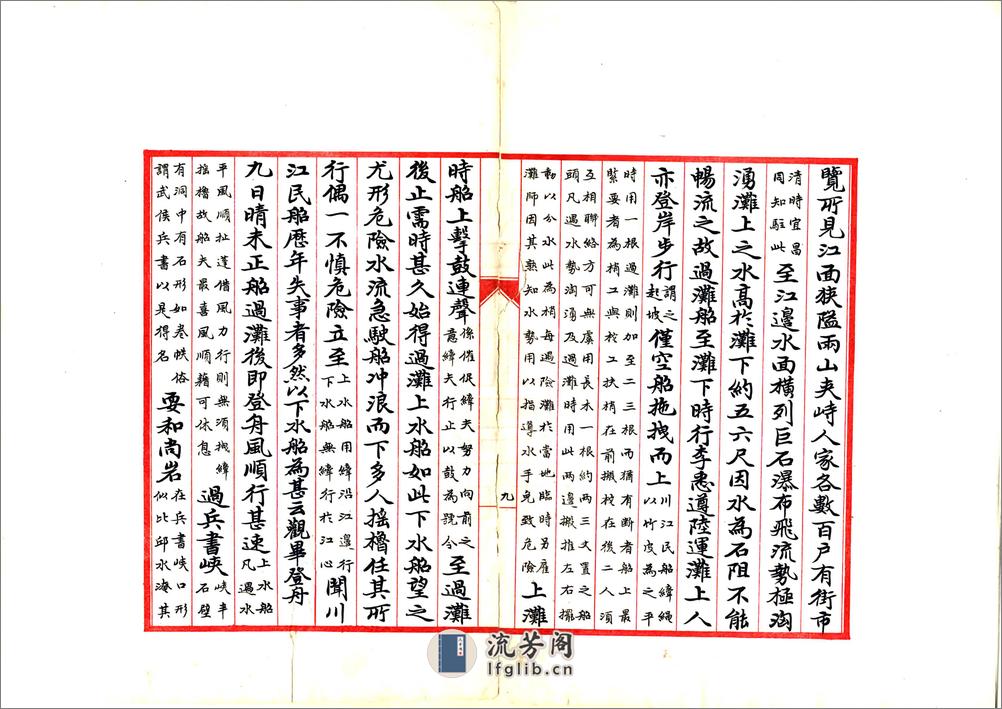 覽所見江面狹隘兩山夾峙人家各數百戶有街市
清時宜昌
同知駐此
至江邊水面橫列巨石瀑布飛流勢極洶
湧灘上之水高於灘下約五六尺因水為石阻不能
暢流之故過灘船至灘下時行李悉遵陸運灘上人
亦登岸步行
謂之
起坡
僅空船拖拽而上
川江民船縴繩
以竹皮為之平
時用一根過灘則加至二三根而猶有斷者船上最
緊要者為梢工與校工扶梢在前搬校在後二人須
互相聯絡方可無虞用長木一根約兩三丈置之船
頭凡遇水勢洶湧及過灘時用此兩邊搬推左右擺
動以分水此為梢每遇險灘於當地臨時另雇
灘師因其熟知水勢用以指導水手免致危險
上灘
九
時船上擊鼓連聲
係催促縴夫努力向前之
意縴夫行止以鼓為號令
至過灘
後止需時甚久始得過灘上水船如此下水船望之
尤形危險水流急駛船冲浪而下多人搖櫓任其所
行偶一不慎危險立至
上水船用縴沿江邊行
下水船無縴行於江心
聞川
江民船歷年失事者多然以下水船為甚云觀畢登舟
九日晴未正船過灘後即登舟風順行甚速
上水船
凡遇水
平風順扯蓬借風力行則無須拽縴
搖櫓故船夫最喜風順藉可休息
過兵書峽
峽半
石壁
有洞中有石形如卷帙俗
謂武侯兵書以是得名
耍和尚岩
在兵書峽口形
似比邱水淹其
流芳阁
lfglib.cn